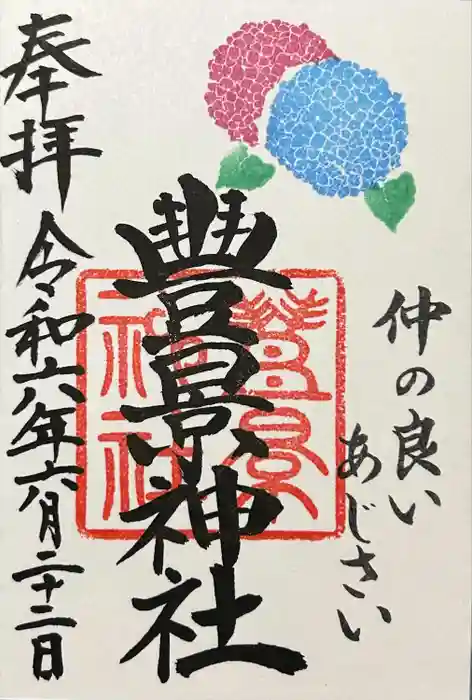 仲の良い
あじさい
豊景神社
豊景神社
奉拝 令和六年六月二十二日